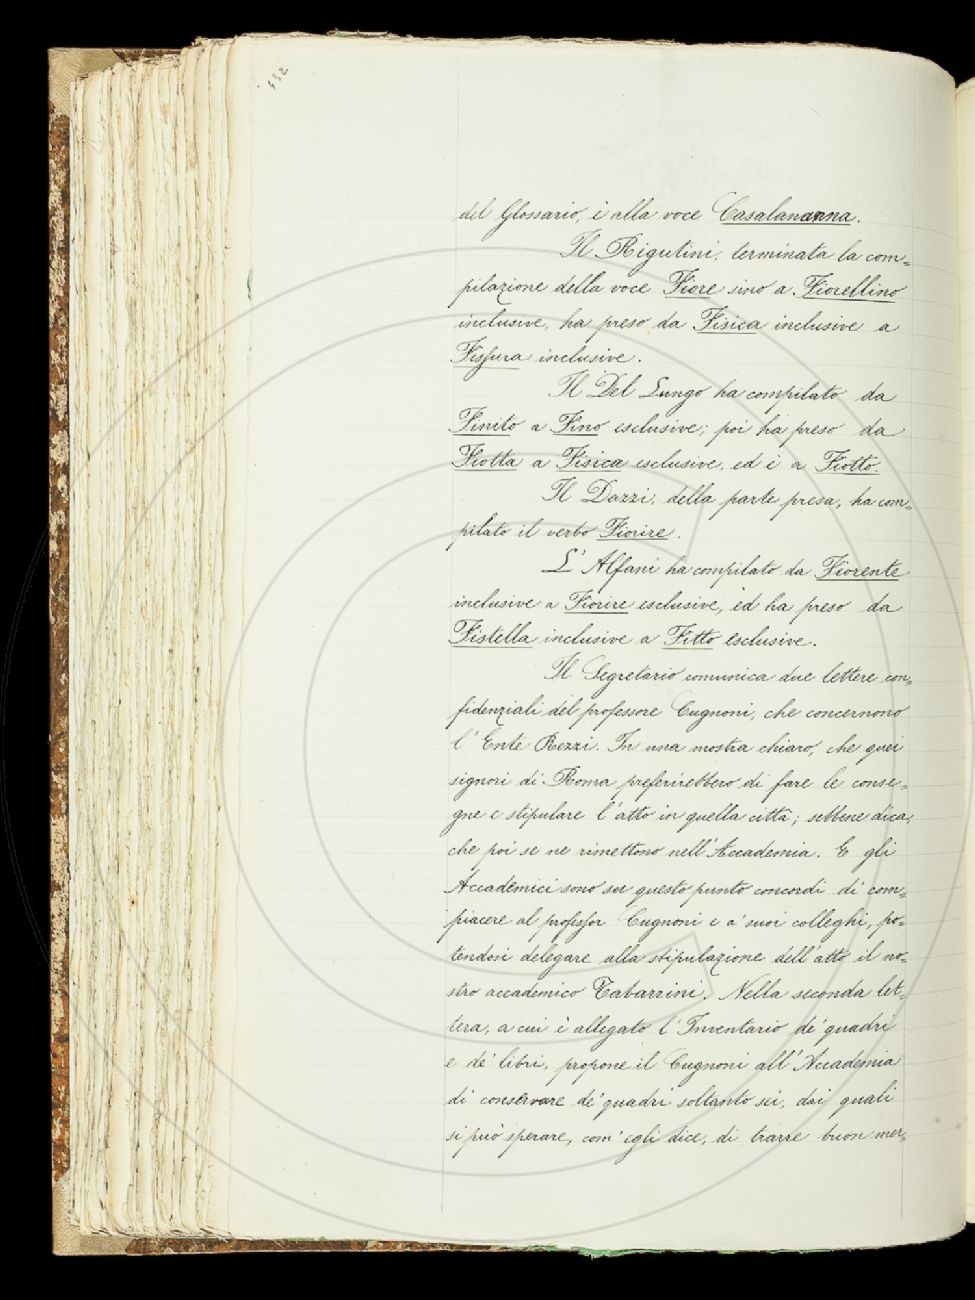 432
del Glossario, è alla voce Casalananna.
Il Rigutini, terminata la com=
pilazione della voce Fiore sino a Fiorellino
inclusive, ha preso da Fisica inclusive a
Fissura inclusive.
Il Del Lungo ha compilato da
Finito a Fino esclusive; poi ha preso da
Fiotta a Fisica esclusive, ed è a Fiotto.
Il Dazzi, della parte presa, ha com=
pilato il verbo Fiorire.
L' Alfani ha compilato da Fiorente
inclusive a Fiorire esclusive, ed ha preso da
Fistella inclusive a Fitto esclusive.
Il Segretario comunica due lettere con=
fidenziali del professore Cugnoni, che concernono
l' Ente Rezzi. In una mostra chiaro, che quei
signori di Roma preferirebbero di fare le conse=
gne e stipulare l' atto in quella città; sebbene dica,
che poi se ne rimettono nell' Accademia. E gli
Accademici sono su questo punto concordi di com=
piacere al professor Cugnoni e a' suoi colleghi, po=
tendosi delegare alla stipulazione dell' atto il no=
stro accademico Tabarrini. Nella seconda let=
tera, a cui è allegato l' Inventario de' quadri
e de' libri, propone il Cugnoni all' Accademia
di conservare de' quadri soltanto sei, dai quali
si può sperare, com' egli dice, di trarre buon mer=